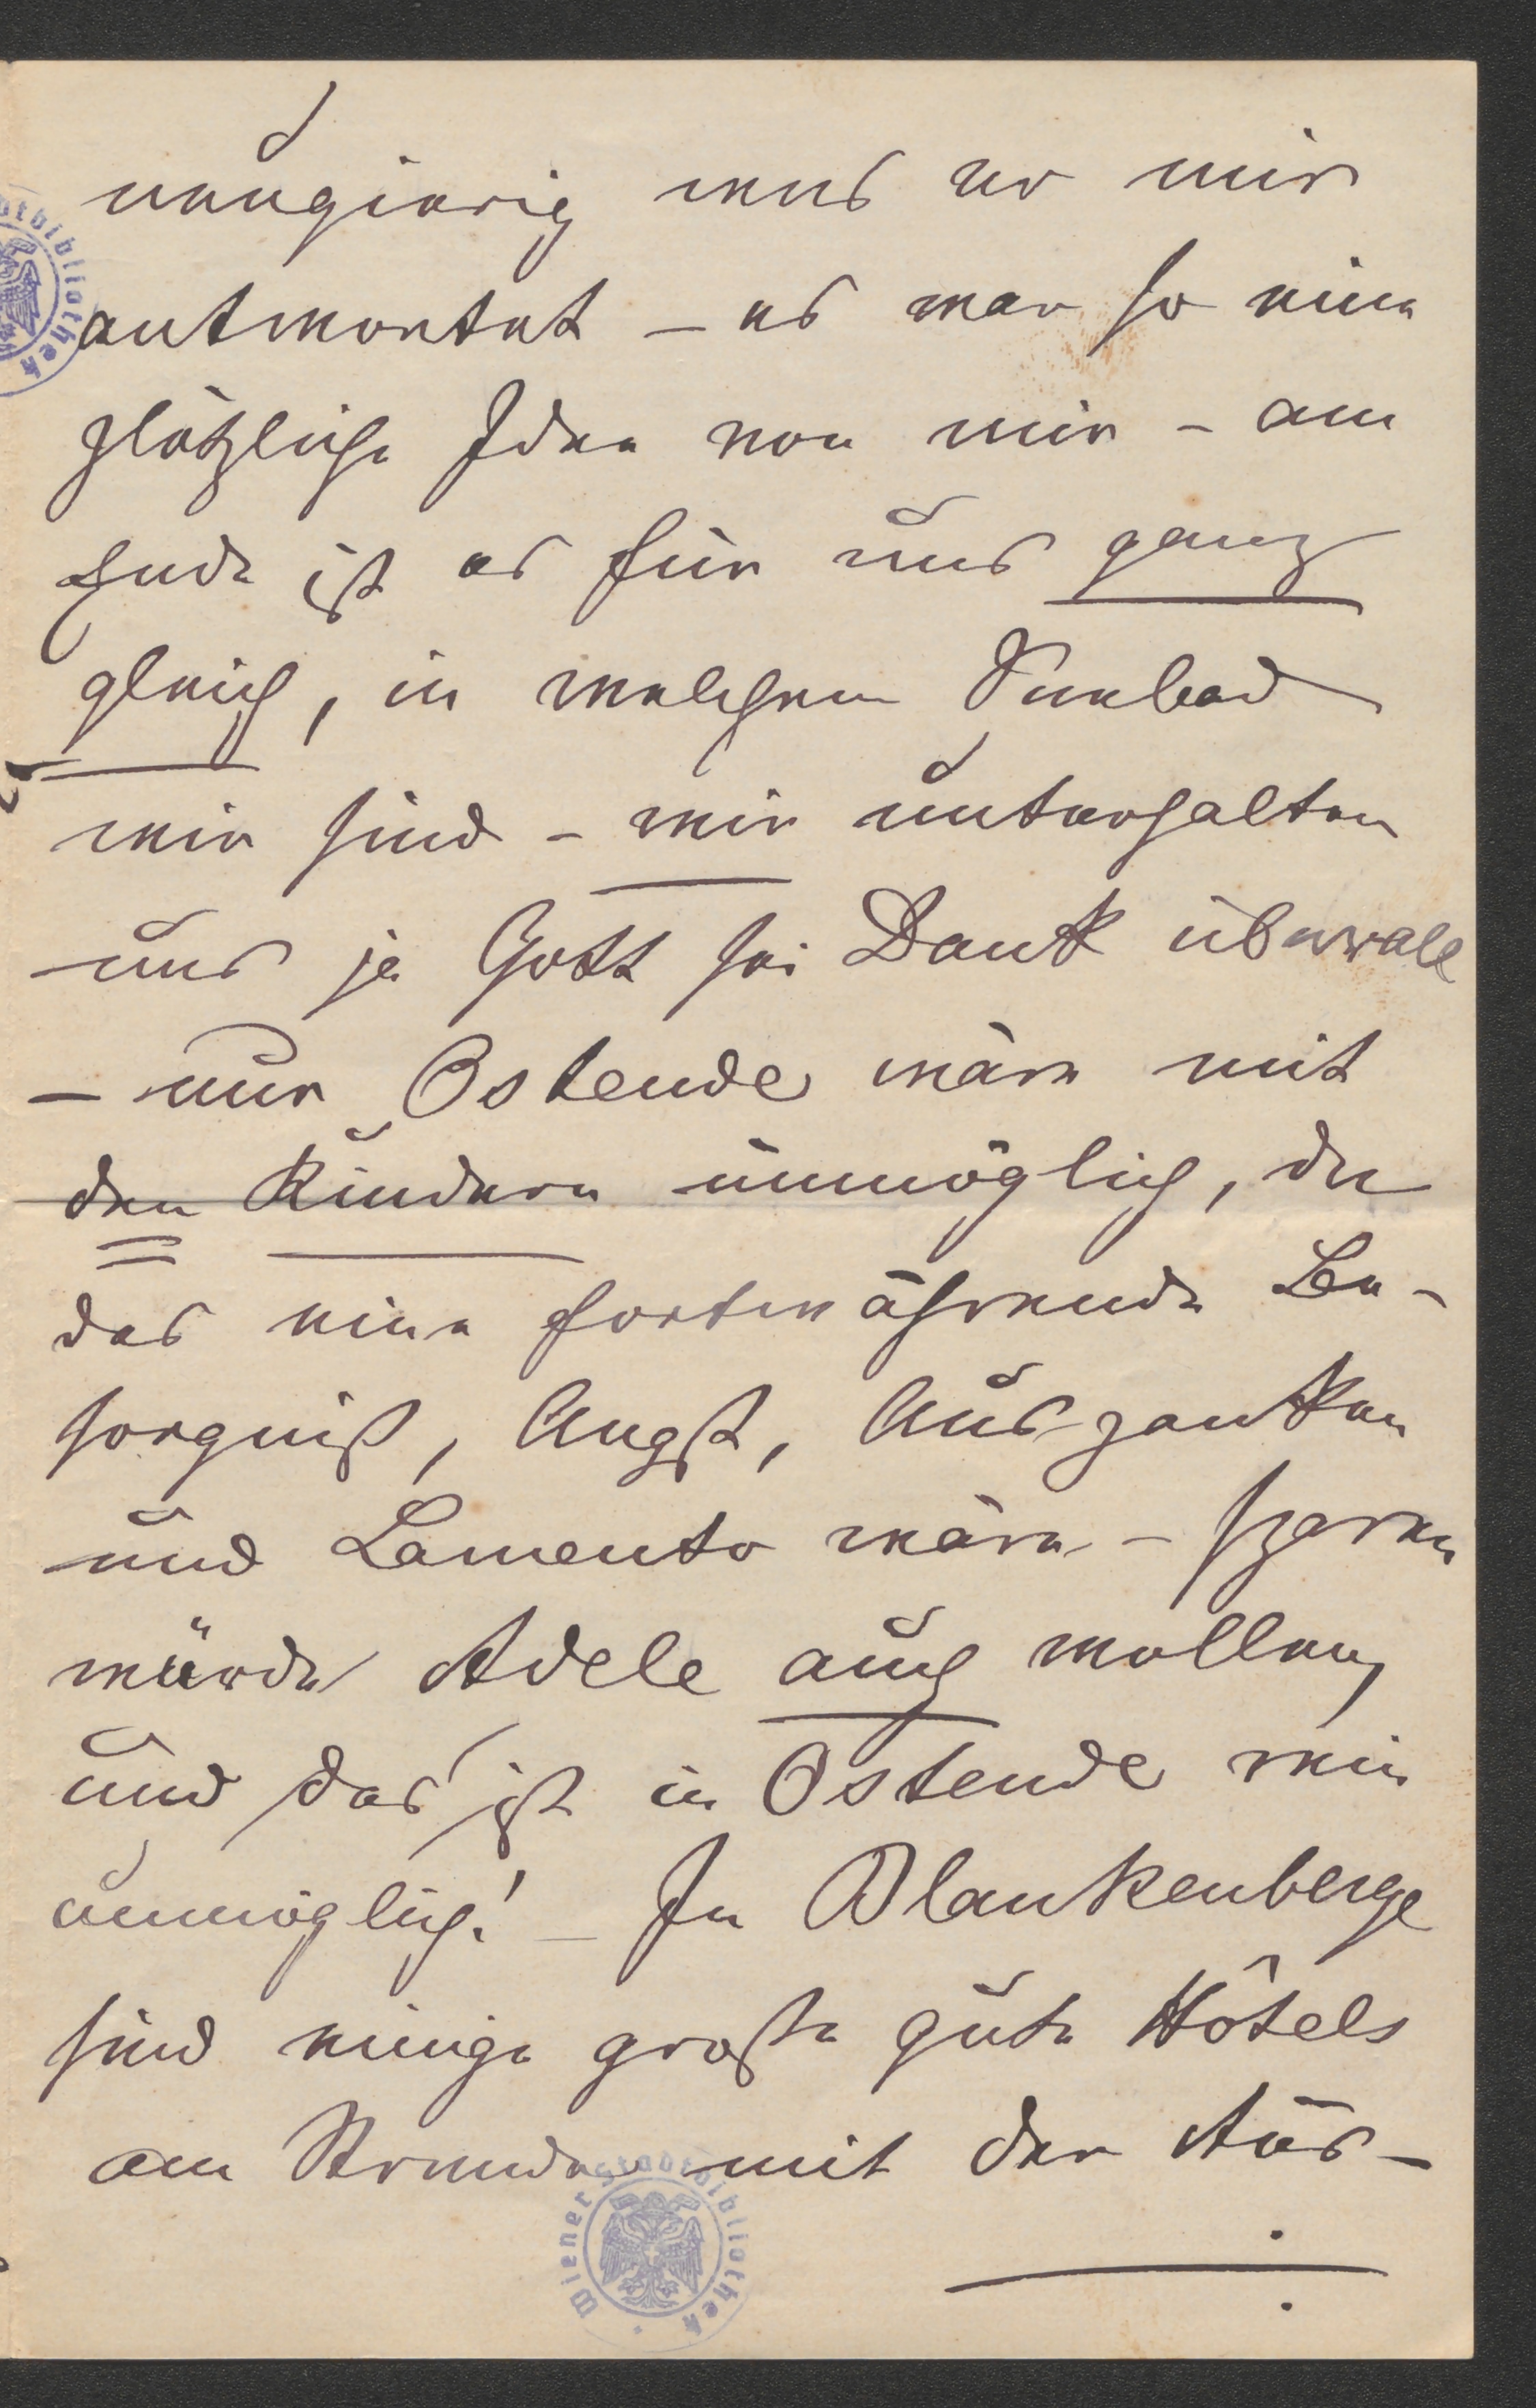 neugierig was er mir
antwortet – es war so eine
plötzliche Idee von mir – am
Ende ist es für uns ganz
gleich, in welchem Seebad
wir sind – wir unterhalten
uns ja Gott sei Dank überall
– nur Ostende wäre mit
den Kindern unmöglich, da
das eine fortwährende Be-
sorgniß, Angst, Auszanken
und Lamento wäre –
würde Adele auch wollen,
und das ist in Ostende rein
unmöglich! – In Blankenberge
sind einige große gute Hôtels
am Strande mit der Aus-
Wiener Stadtbibliothek